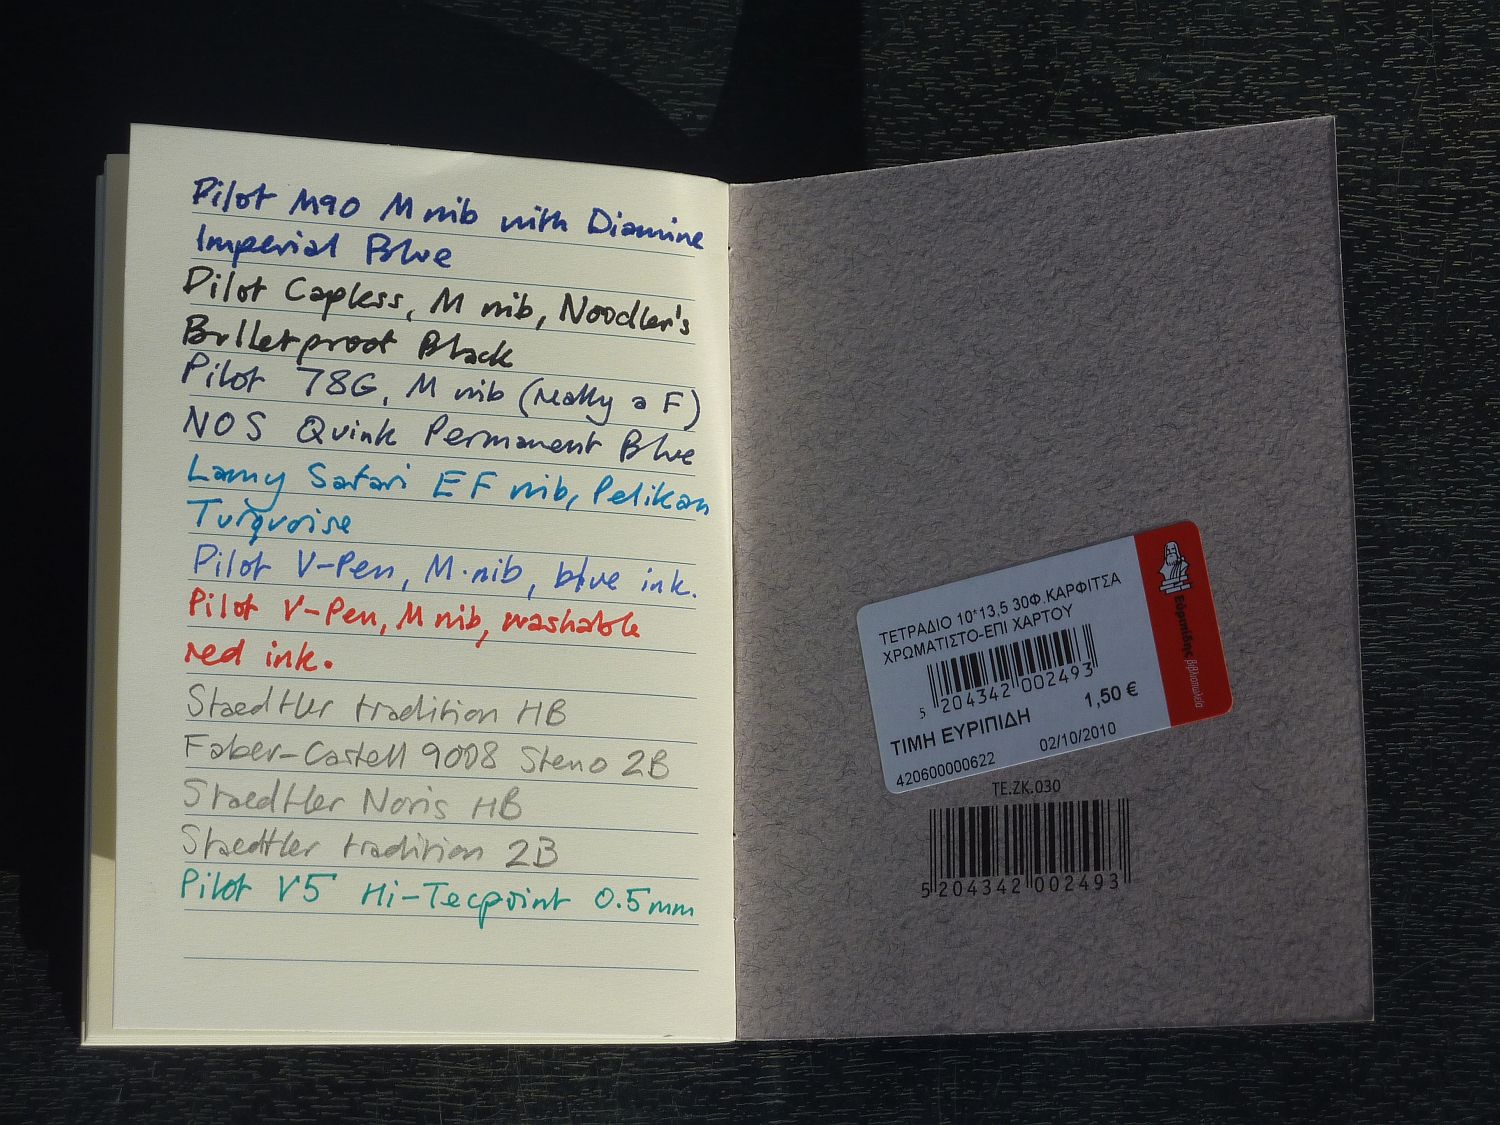 Pilot M90 M nib with Diamine
Imperial Blue
Pilot Capless, M nib, Noodler's
Bulletproof Black
Pilot 78G, M nib (really a F)
NOS Quink Permanent Blue
Lamy Safari EF nib, Pelikan
Turquoise
Pilot V-Pen, M nib, blue ink.
Pilot V-Pen, M nib, washable
red ink.
Staedtler tradition HB
Faber-Castell 9008 Steno 2B
Staedtler Noris HB
Staedtler tradition 2B
Pilot V5 Hi-Tecpoint 0.5mm
ΤΕΤΡΑΔΙΟ 10*13,5 30Φ.ΚΑΡΦΙΤΣΑ
ΧΡΩΜΑΤΙΣΤΟ-ΕΠΙ ΧΑΡΤΟΥ
5 204342 002493
1,50 €
ΤΙΜΗ ΕΥΡΙΠΙΔΗ
02/10/2010
420600000622
Εὐριπίδης βιβλιοπωλεία
TE.ZK.030
5 204342 002493